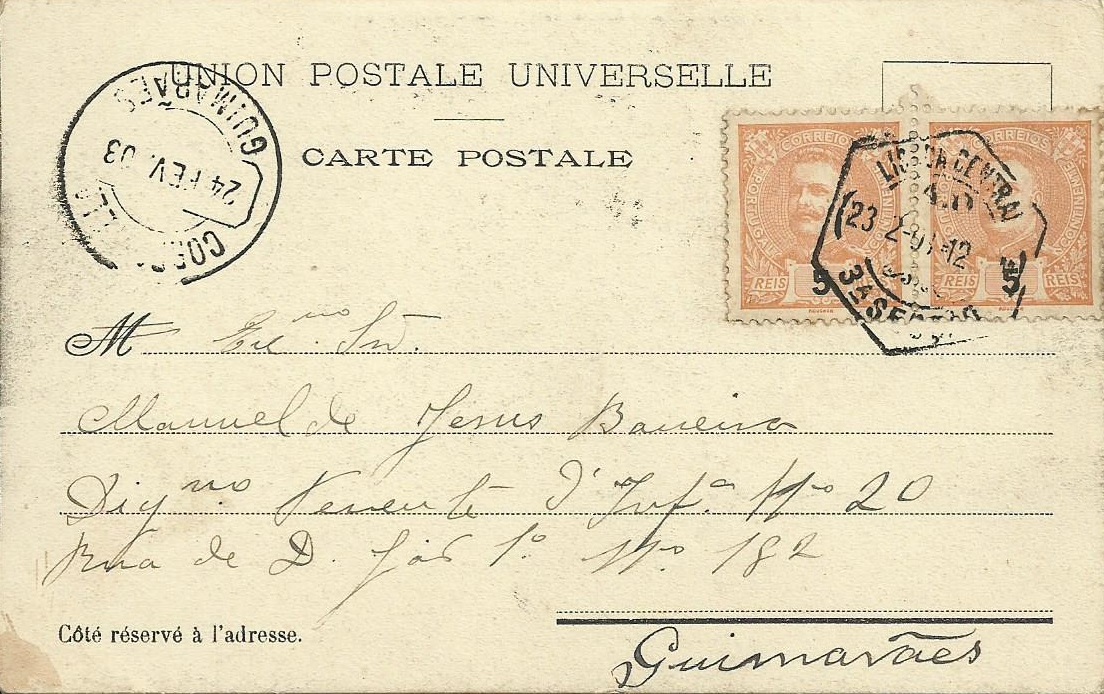 UNION POSTALE UNIVERSELLE
CARTE POSTALE
GUIMARÃES
24 FEV. 03
CORREIOS
PORTUGAL CONTINENTE
5
REIS REIS
CORREIOS
PORTUGAL CONTINENTE
5
REIS REIS
LISBOA CENTRAL
23 2
3A SECÇÃO
M Exmo Snr.
Manuel de Jesus
Digno Tenente d'Infa No 20
Rua de D. João 1o No 182
Guimarães
Côté réservé à l'adresse.